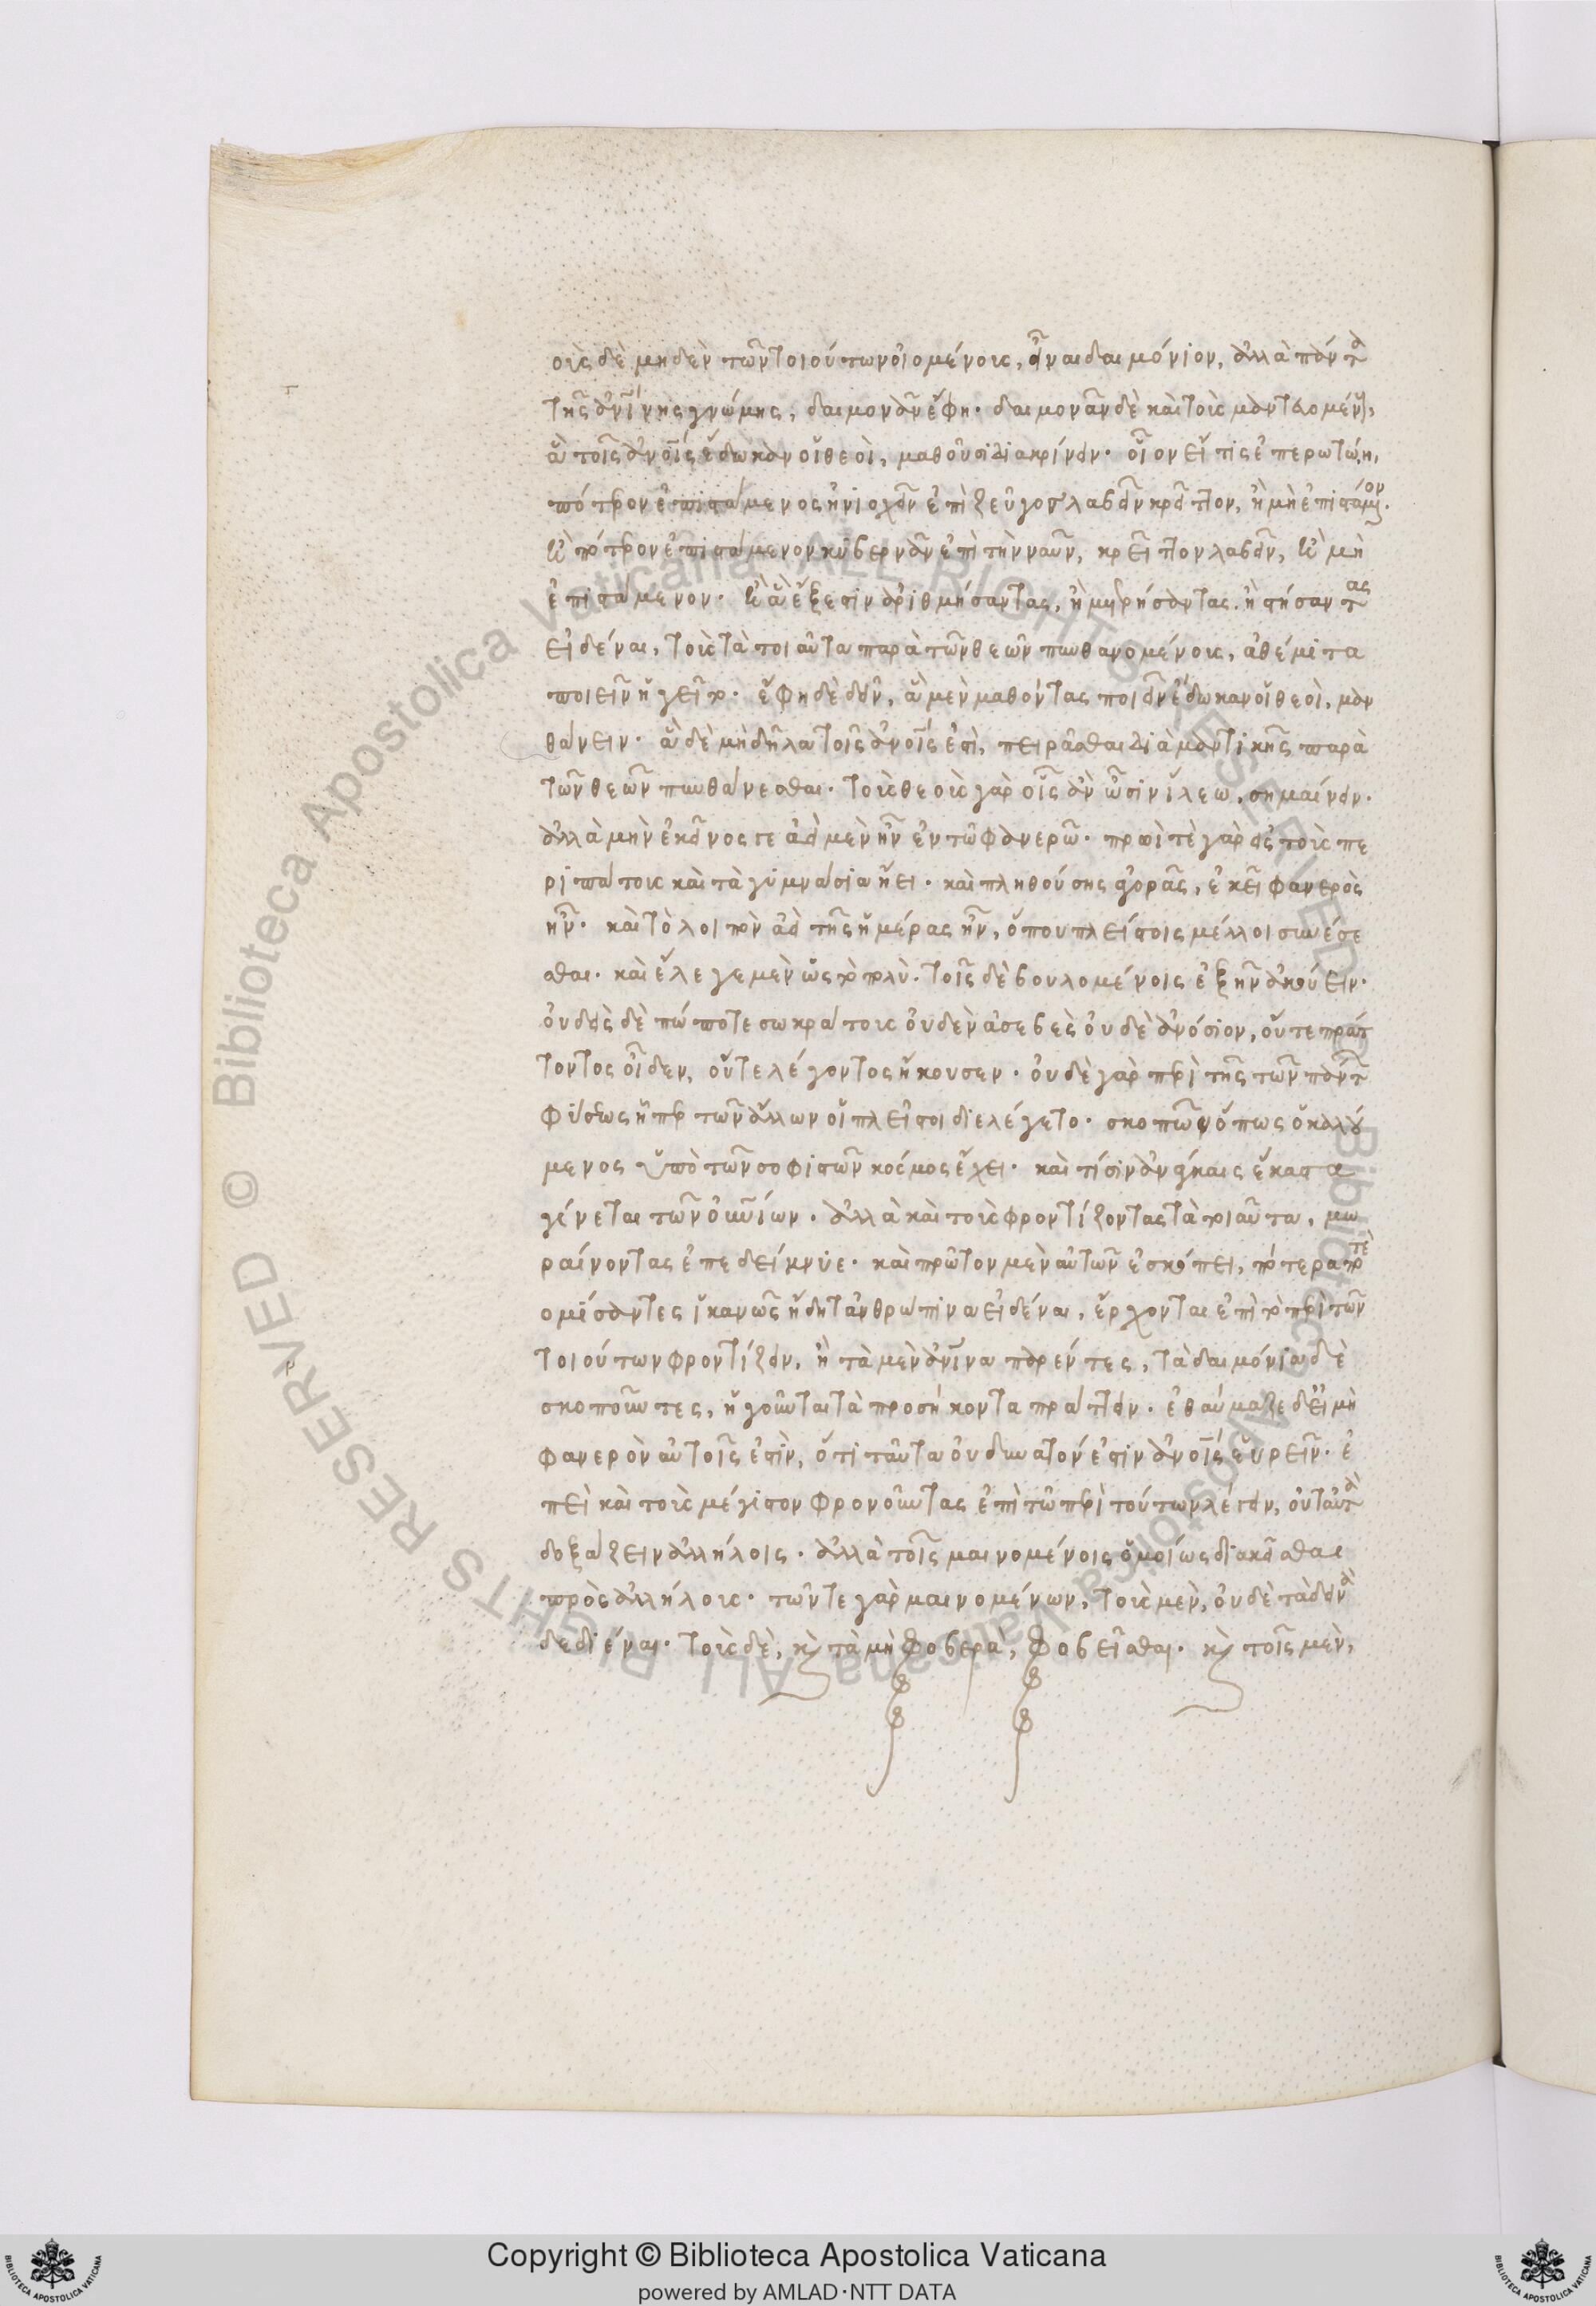 οὺς δὲ μηδὲν τῶν τοιούτων οἰομένους, εἶναι δαιμόνιον, ἀλλὰ πάντα
τῆς ἀνίνης γνώμης, δαιμονᾶν ἔφη. δαιμονᾶν δὲ καὶ τοὺς μαντευομένους,
ἃ τοῖς ἀνοις ἔδωκαν οἱ θεοὶ, μαθοῦσι διακρίνειν. οἷον εἴ τις ἐπερωτώη,
πότερον ἐπιστάμενος ἡνιοχεῖν ἐπὶ ζεῦγος λαβεῖν κρεῖττον, ἢ μὴ ἐπιστάμενον.
ἢ πότερον ἐπιστάμενον κυβερνᾶν ἐπὶ τὴν ναῦν, κρεῖττον λαβεῖν, ἢ μὴ
ἐπιστάμενον. ἢ ἃ ἔξεστιν ἀριθμήσαντας, ἢ μετρήσαντας, ἢ στήσαντας
εἰδέναι, τοὺς τὰ τοιαῦτα παρὰ τῶν θεῶν πυνθανομένους, ἀθέμιτα
ποιεῖν ἡγεῖτο. ἔφη δὲ δεῖν, ἃ μὲν μαθόντας ποιεῖν ἔδωκαν οἱ θεοὶ, μαν
θάνειν. ἃ δὲ μὴ δῆλα τοῖς ἀνοις ἐστὶ, πειρᾶσθαι διὰ μαντικῆς παρὰ
τῶν θεῶν πυνθάνεσθαι. τοὺς θεοὺς γὰρ οἷς ἂν ὦσιν ἵλεω, σημαίνειν.
ἀλλὰ μὴν ἐκεῖνός γε ἀεὶ μὲν ἦν ἐν τῷ φανερῷ. πρωὶ τὲ γὰρ εἰς τοὺς πε
ριπάτους καὶ τὰ γυμνάσια ἤει. καὶ πληθούσης ἀγορᾶς, ἐκεῖ φανερὸς
ἦν. καὶ τὸ λοιπὸν ἀεὶ τῆς ἡμέρας ἦν, ὅπου πλείστοις μέλλοι συνέσε
σθαι. καὶ ἔλεγε μὲν ὡς τὸ πολύ. τοῖς δὲ βουλομένοις ἐξῆν ἀκούειν.
οὐδεὶς δὲ πώποτε σωκράτους οὐδὲν ἀσεβὲς οὐδὲ ἀνόσιον, οὔτε πράτ
τοντος οἶδεν, οὔτε λέγοντος ἤκουσεν. οὐδὲ γὰρ περὶ τῆς τῶν πάντων
φύσεως ἧπερ τῶν ἄλλων οἱ πλεῖστοι διελέγετο. σκοπῶν ὅπως ὁ καλού
μενος ὑπὸ τῶν σοφιστῶν κόσμος ἔχει. καὶ τίσιν ἀνάγκαις ἕκαστα
γίνεται τῶν οὐνίων. ἀλλὰ καὶ τοὺς φροντίζοντας τὰ τοιαῦτα, μω
ραίνοντας ἐπεδείκνυε. καὶ πρῶτον μὲν αὐτῶν ἐσκόπει, πότερα ποτὲ
ομίσαντες ἱκανῶς ἤδη τἀνθρώπινα εἰδέναι, ἔρχονται ἐπὶ τὸ περὶ τῶν
τοιούτων φροντίζειν, ἢ τὰ μὲν ἀνινα παρέντες, τὰ δαιμόνια δὲ
σκοποῦντες, ἡγοῦνται τὰ προσήκοντα πράττειν. ἐθαύμαζε δ' εἰ μὴ
φανερὸν αὐτοῖς ἐστὶν, ὅτι ταῦτα οὐ δυνατόν ἐστιν ἀνοις εὑρεῖν. ἐ
πεὶ καὶ τοὺς μέγιστον φρονοῦντας ἐπὶ τῷ περὶ τούτων λέγειν, οὐ ταὐτὰ
δοξάζειν ἀλλήλοις. ἀλλὰ τοῖς μαινομένοις ὁμοίως διακεῖσθαι
πρὸς ἀλλήλους. τῶν τε γὰρ μαινομένων, τοὺς μὲν, οὐδὲ τὰ δεινὰ
δεδιέναι. τοὺς δὲ, καὶ τὰ μὴ φοβερὰ, φοβεῖσθαι. καὶ τοῖς μὲν,
Biblioteca Apostolica Vaticana ALL RIGHTS RESERVED ©
Copyright © Biblioteca Apostolica Vaticana
powered by AMLAD·NTT DATA
BIBLIOTECA APOSTOLICA VATICANA
BIBLIOTECA APOSTOLICA VATICANA